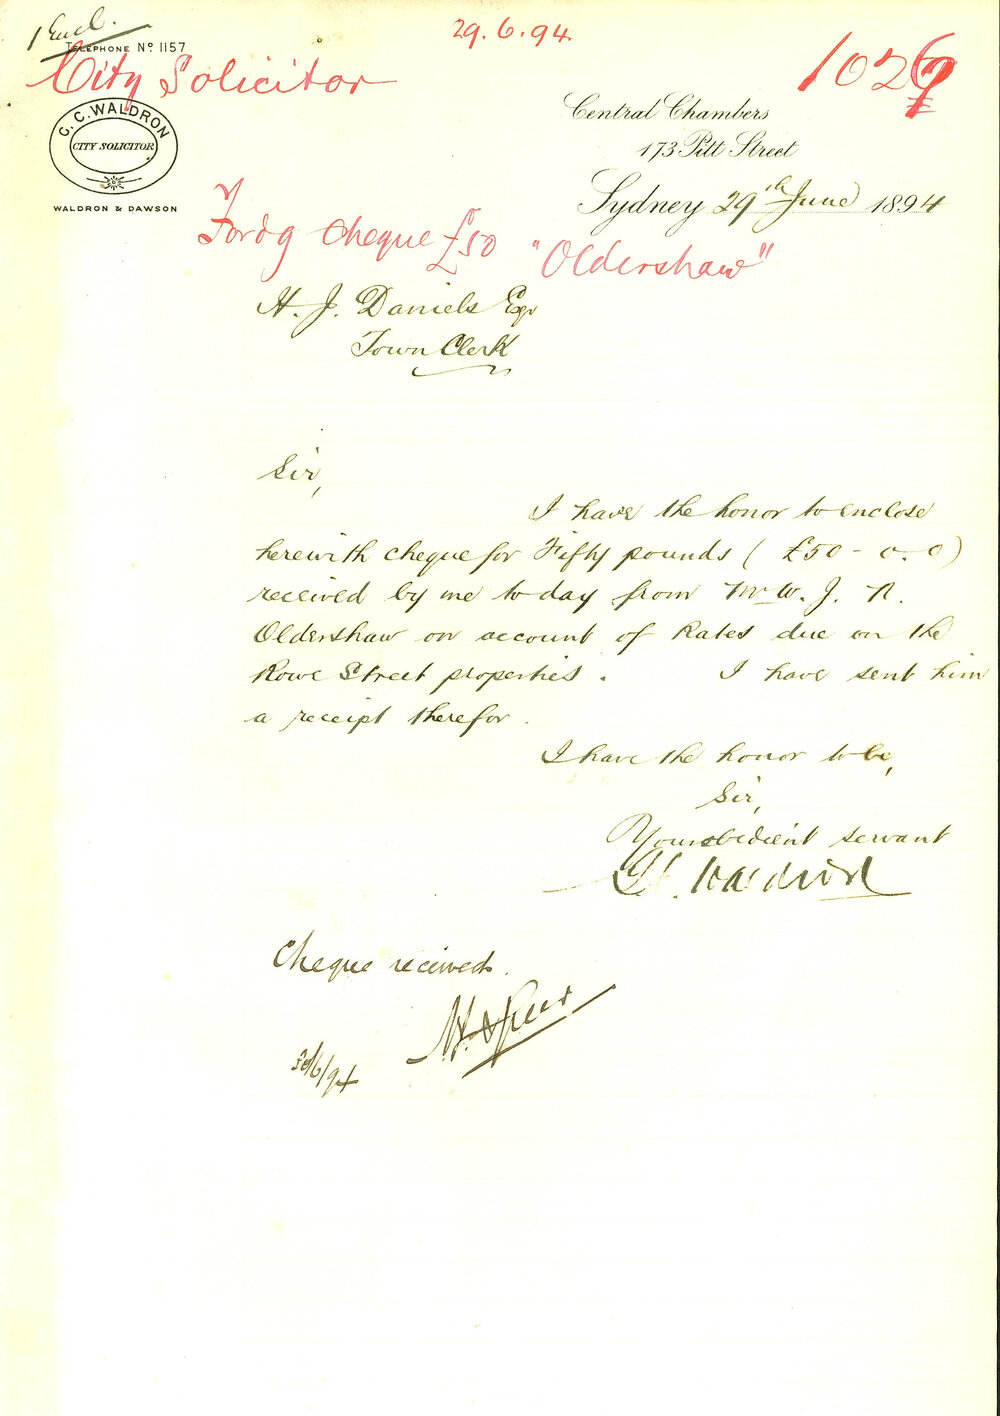 1 Encl.
29.6.94
TELEPHONE No. 1157
City Solicitor
C. C. WALDRON
CITY SOLICITOR
WALDRON & DAWSON
Central Chambers
173 Pitt Street
Sydney 29th June 1894
Fordg Cheque £50 "Oldershaw"
H. J. Daniels Esqr
Town Clerk
Sir,
I have the honor to enclose
herewith cheque for Fifty pounds ( £50 - 0. 0)
received by me to-day from Mr W. J. R.
Oldershaw on account of Rates due on the
Rowe Street properties. I have sent him
a receipt therefor.
I have the honor to be,
Sir,
Your obedient servant
Waldron
Cheque received.
30/6/94